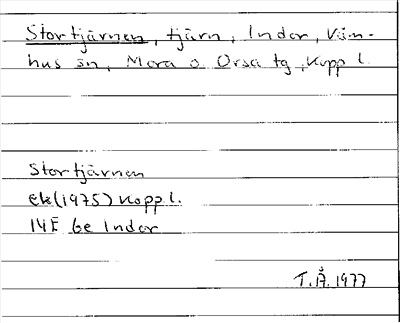 Stortjärnen, tjärn, Indor, Väm-
hus sn, Mora o. Orsa tg, Kopp l.
Stortjärnen
ek(1975) Kopp l.
14E 6e Indor
T.Å. 1977